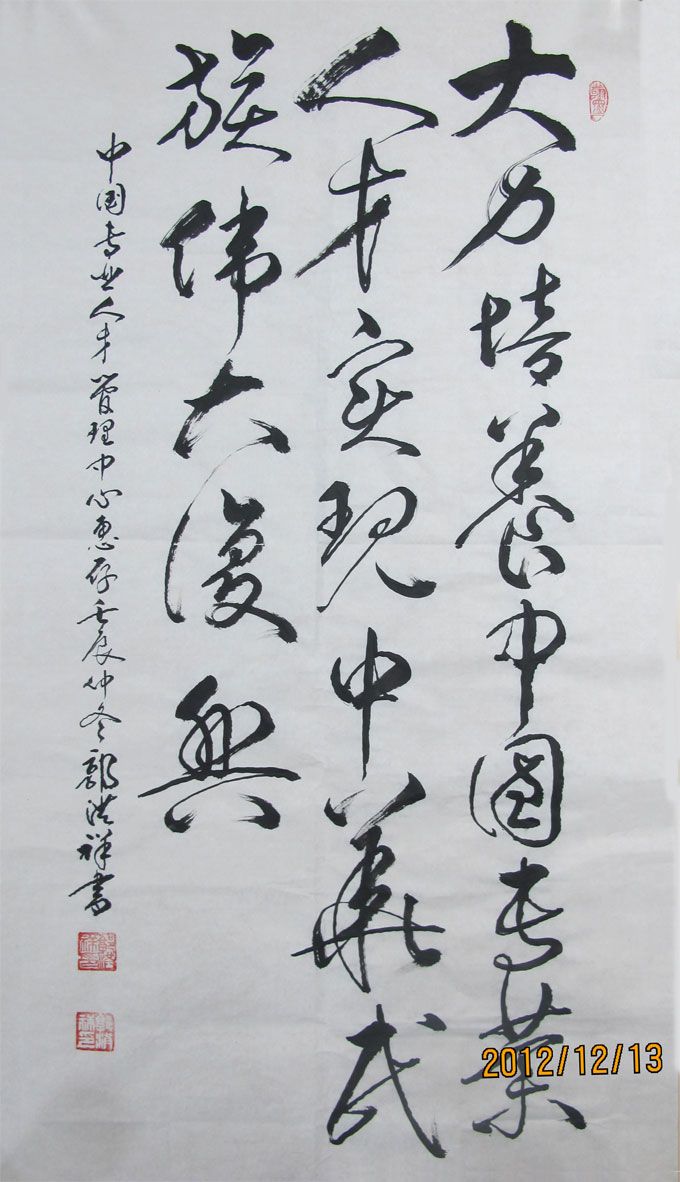 大力培養中國专業
人才实现中華民
族偉大復興
中国专业人才管理中心惠存壬辰仲冬郭洪祥書
2012/12/13